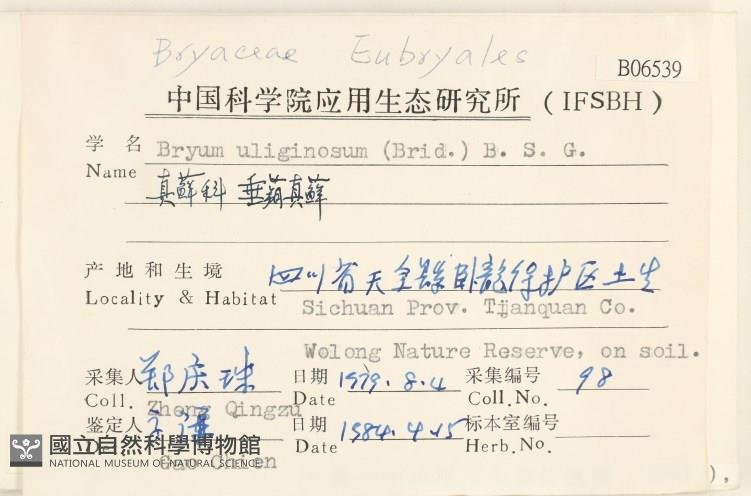 Bryaceae Eubryales
B06539
中国科学院应用生态研究所 (IFSBH)
学名 Bryum uliginosum (Brid.) B. S. G.
Name 真蘚科 垂蒴真蘚
产地和生境 四川省天全縣卧龍保护区土生
Locality & Habitat Sichuan Prov. Tianquan Co.
Wolong Nature Reserve, on soil.
采集人 郑庆珠 日期 1979.8.4 采集编号 98
Coll. Zheng Qingzu Date Coll.No.
鉴定人 日期 1984.4.15 标本室编号
Date Herb.No.
國立自然科學博物館
NATIONAL MUSEUM OF NATURAL SCIENCE
Chien
),